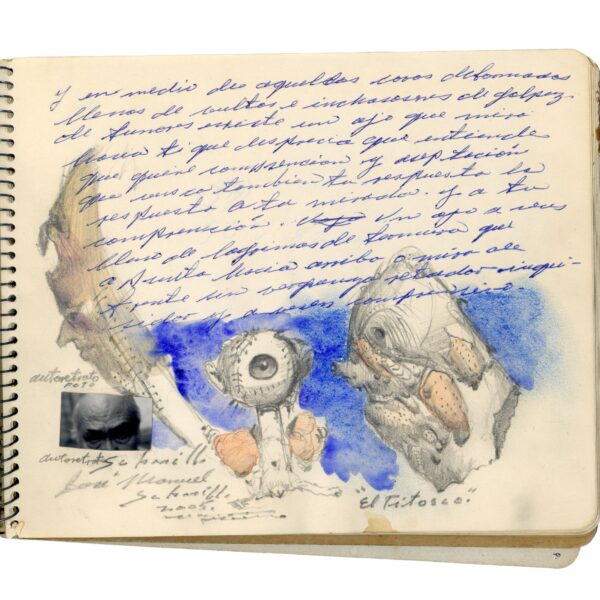 y en medio de aquellas caras deformadas
llenas de bultos e inchasones de golpes
de tumores existe un ojo que mira
hacia ti que desprecia que entiende
que quiere comprencion y aseptación
que busca tambien tu respuesta la
respuesta a tu mirada. y a tu
comprención. un ojo a veses
lleno de lagrimas de ternura que
o hacia arriba o mira de
frente sin verguenza retador inqui-
sidor y a veses comprensivo.
autoretrato
autoretrato
José Manuel
2005.
"El Titosco."